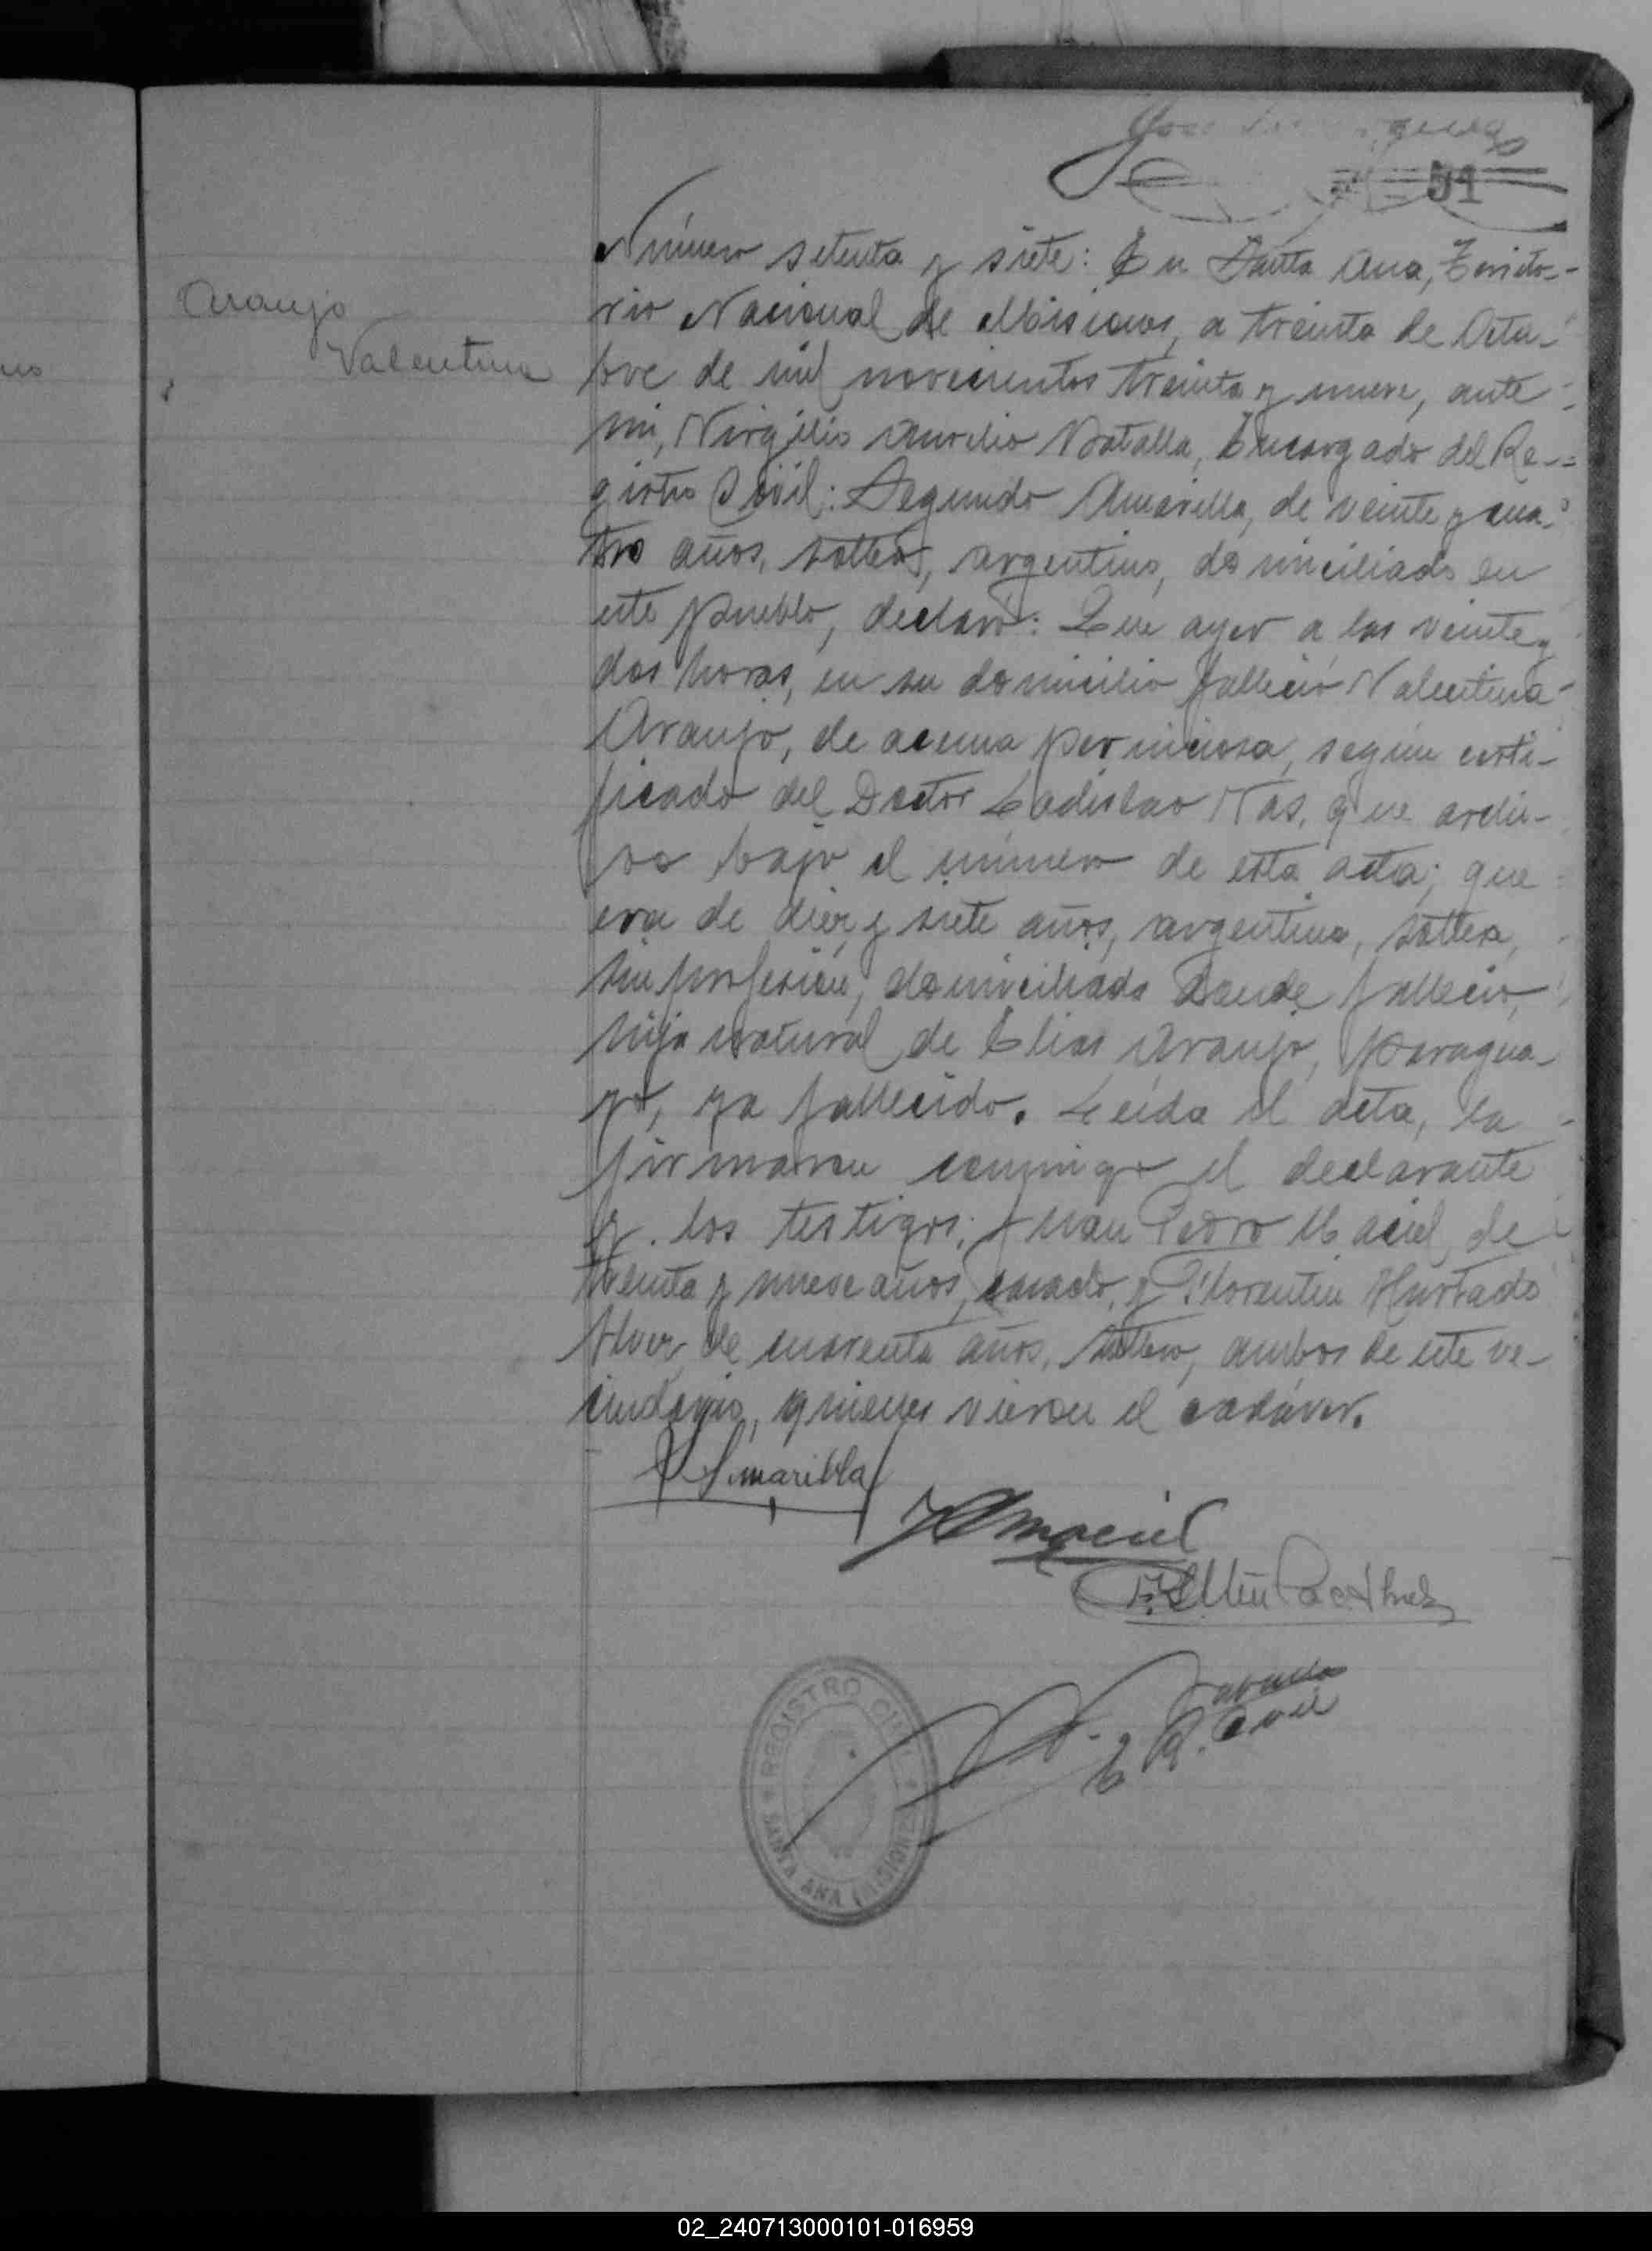 51
Araujo
Valentina
Número setenta y siete: En Santa Ana, Territo-
rio Nacional de Misiones, a treinta de Octu-
bre de mil novecientos treinta y nueve, ante
mi, Virgilio Aurelio Batalla, Encargado del Re-
gistro Civil: Segundo Amarilla, de veinte y cua-
tro años, soltero, argentino, domiciliado en
este pueblo, declaró: Que ayer a las veinte y
dos horas, en su domicilio falleció Valentina
Araujo, de acema perniciosa, según certi-
ficado del Doctor Ladislao Nas, que archi-
vo bajo el número de esta acta; que
era de diez y siete años, argentina, soltera,
sin profesión, domiciliada donde falleció,
hija natural de Elias Araujo, paragua-
yo, ya fallecido. Leída el acta, la
firmaron conmigo el declarante
y los testigos: Juan Pedro Maciel, de
treinta y nueve años, casado, y Florentin Hurtado
de cuarenta años, soltero, ambos de este ve-
cindario, quienes vieron el cadáver.
Amarilla
Maciel
E. R. Civil
REGISTRO CIVIL
SANTA ANA (MISIONES)
02_240713000101-016959